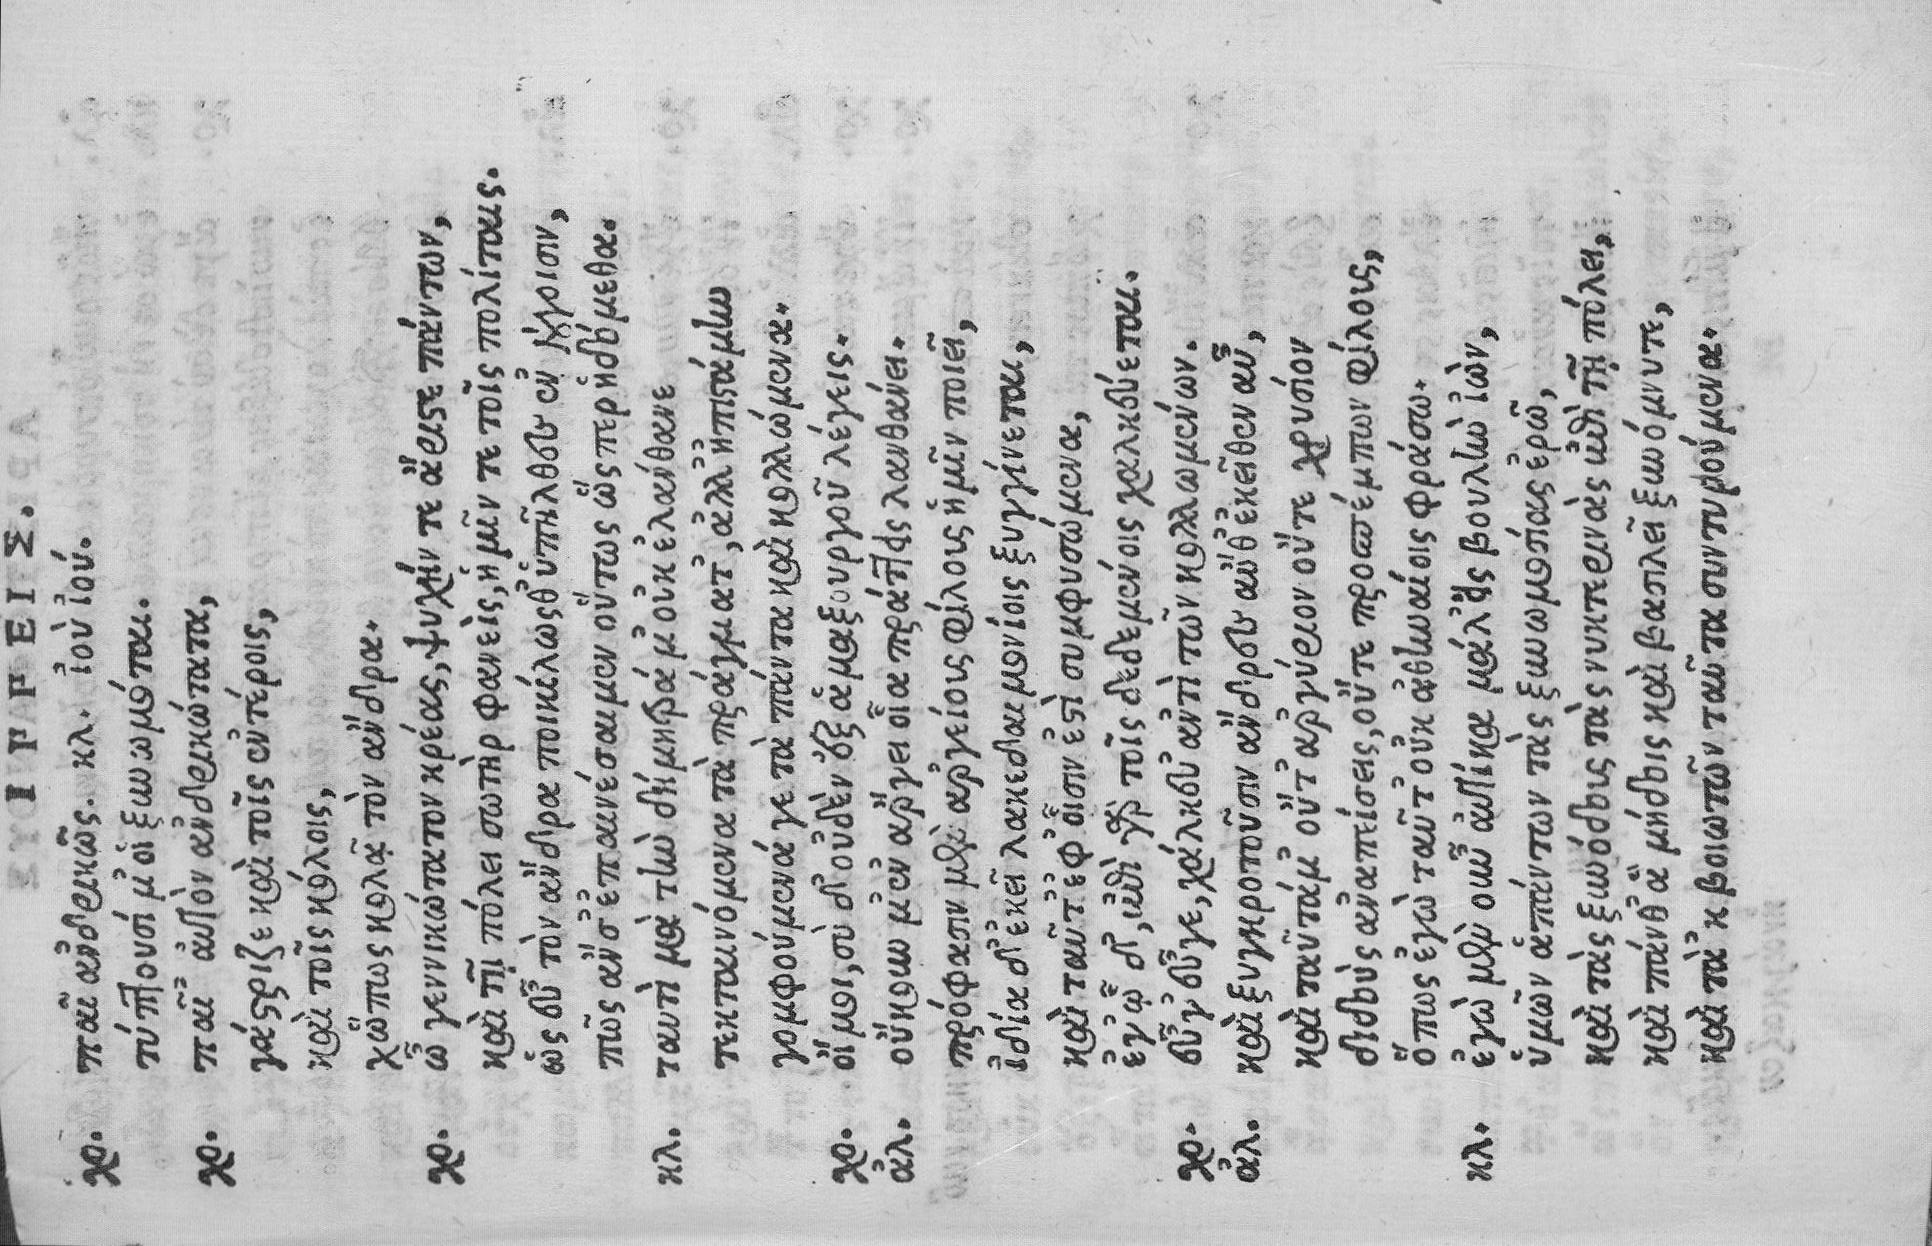 ΙΠΠΕΙΣ.
χο. παῖ ἀνδρικῶς. κλ. ἰοὺ ἰού.
τύπτουσί μ' οἱ ξυνωμόται.
χο. παῖ' αὐτὸν ἀνδρικώτατα,
γάστριζε καὶ τοῖς ἐντέροις,
καὶ τοῖς κόλοις,
χὤπως κολᾷ τὸν ἄνδρα.
χο. ὦ γεννικώτατον κρέας, ψυχήν τε ἄριστε πάντων,
καὶ τῇ πόλει σωτὴρ φανεὶς, ἡμῖν τε τοῖς πολίταις.
ὡς εὖ τὸν ἄνδρα ποικίλως θ' ὑπῆλθες ἐν λόγοισιν,
πῶς ἄν σ' ἐπαινέσαιμεν οὕτως ὥσπερ ἡδόμεθα.
κλ. ταυτὶ μὰ τὴν δήμητρά μ' οὐκ ἐλάνθανε
τεκταινόμενα τὰ πράγματ', ἀλλ' ἠπιστάμην
γομφούμενά γε τὰ πάντα καὶ κολλώμενα.
χο. οἴμοι, σὺ δ' οὐδὲν ἐξ ἁμαξουργοῦ λέγεις.
ἀλ. οὔκουν μ' ἐν ἄργει οἷα πράττεις λανθάνει.
πρόφασιν μὲν ἀργείους φίλους ἡμῖν ποιεῖ,
ἰδίᾳ δ' ἐκεῖ λακεδαιμονίοις ξυγγίνεται,
καὶ ταῦτ' ἐφ' οἷσιν ἐστὶ συμφυσώμενα,
ἐγᾦδ', ἐπὶ γὰρ τοῖς δεδεμένοις χαλκεύεται.
χο. εὖγ' εὖγε, χάλκευ' ἀντὶ τῶν κολλωμένων.
ἀλ. καὶ ξυγκροτοῦσιν ἄνδρες αὔθ' ἐκεῖθεν αὖ,
καὶ ταῦτά μ' οὔτ' ἀργύριον οὔτε χρυσίον
διδοὺς ἀναπείσεις, οὔτε προσπέμπων φίλους,
ὅπως ἐγὼ ταῦτ' οὐκ ἀθηναίοις φράσω.
κλ. ἐγὼ μὲν οὖν αὐτίκα μάλ' εἰς βουλὴν ἰὼν,
ὑμῶν ἁπάντων τὰς ξυνωμοσίας ἐρῶ,
καὶ τὰς ξυνόδους τὰς νυκτερινὰς ἐπὶ τῇ πόλει,
καὶ πάνθ' ἃ μήδοις καὶ βασιλεῖ ξυνόμνυτε,
καὶ τὰ 'κ βοιωτῶν ταῦτα συντυρούμενα.